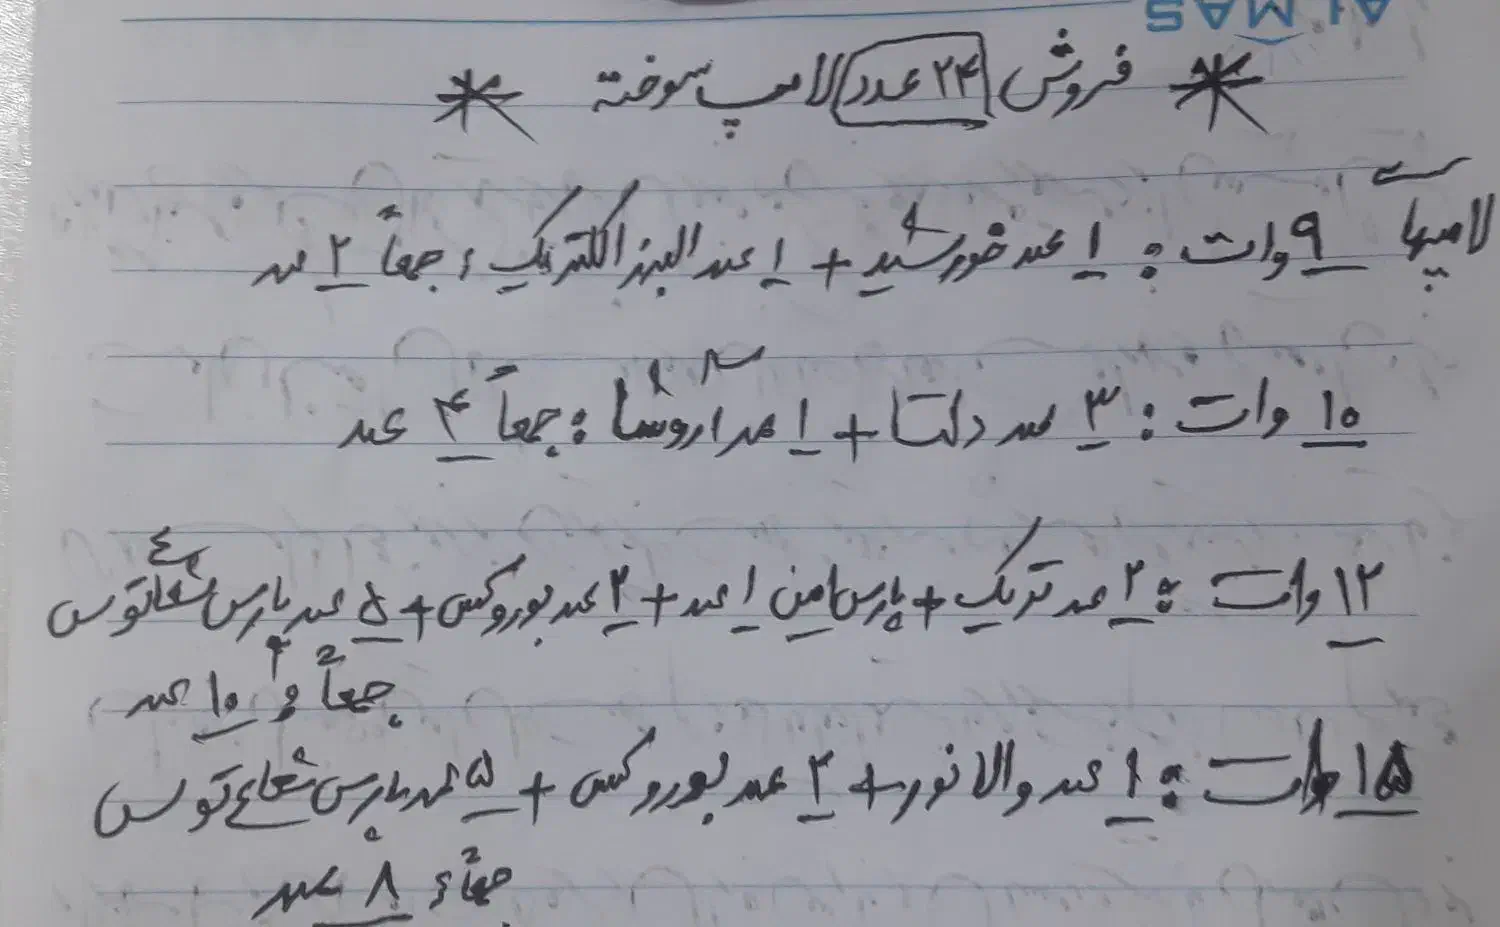 ALMAS
* فروش ۲۴ عدد لامپ سوخته *
لامپهای ۹ وات: ۱ عدد خورشید + ۱ عدد البرز الکتریک: جمعاً ۲ عدد
۱۰ وات: ۳ عدد دلتا + ۱ عدد اروشا: جمعاً ۴ عدد
۱۲ وات: ۲ عدد تریک + پارس امین ۱ عدد + ۲ عدد بوروکس + ۵ عدد پارس شعاع توس
جمعاً: ۱۰ عدد
۱۵ وات: ۱ عدد والا نور + ۲ عدد بوروکس + ۵ عدد پارس شعاع توس
جمعاً: ۸ عدد